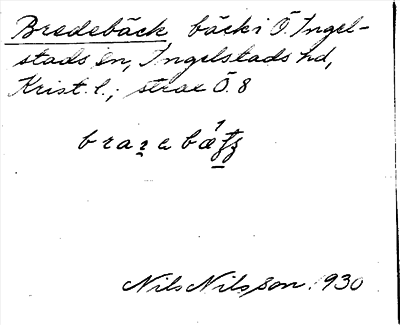 Bredebäck bäck i Ö. Ingel-
stads sn, Ingelstads hd,
Krist. l.; strax Ö. 8
Nils Nilsson 1930